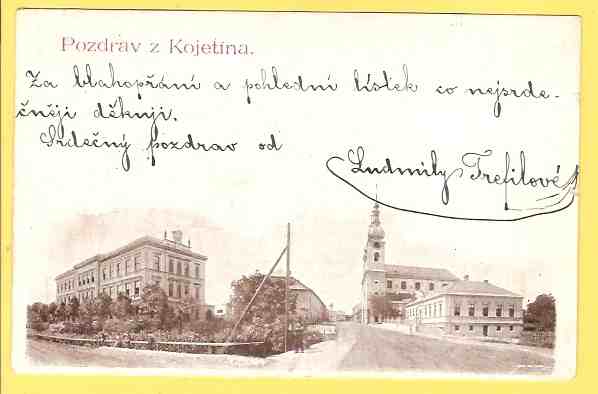 Pozdrav z Kojetína.
Za blahopřání a pohlední lístek co nejsrde-
čněji děkuji.
Srdečný pozdrav od
Ludmily Trefilové